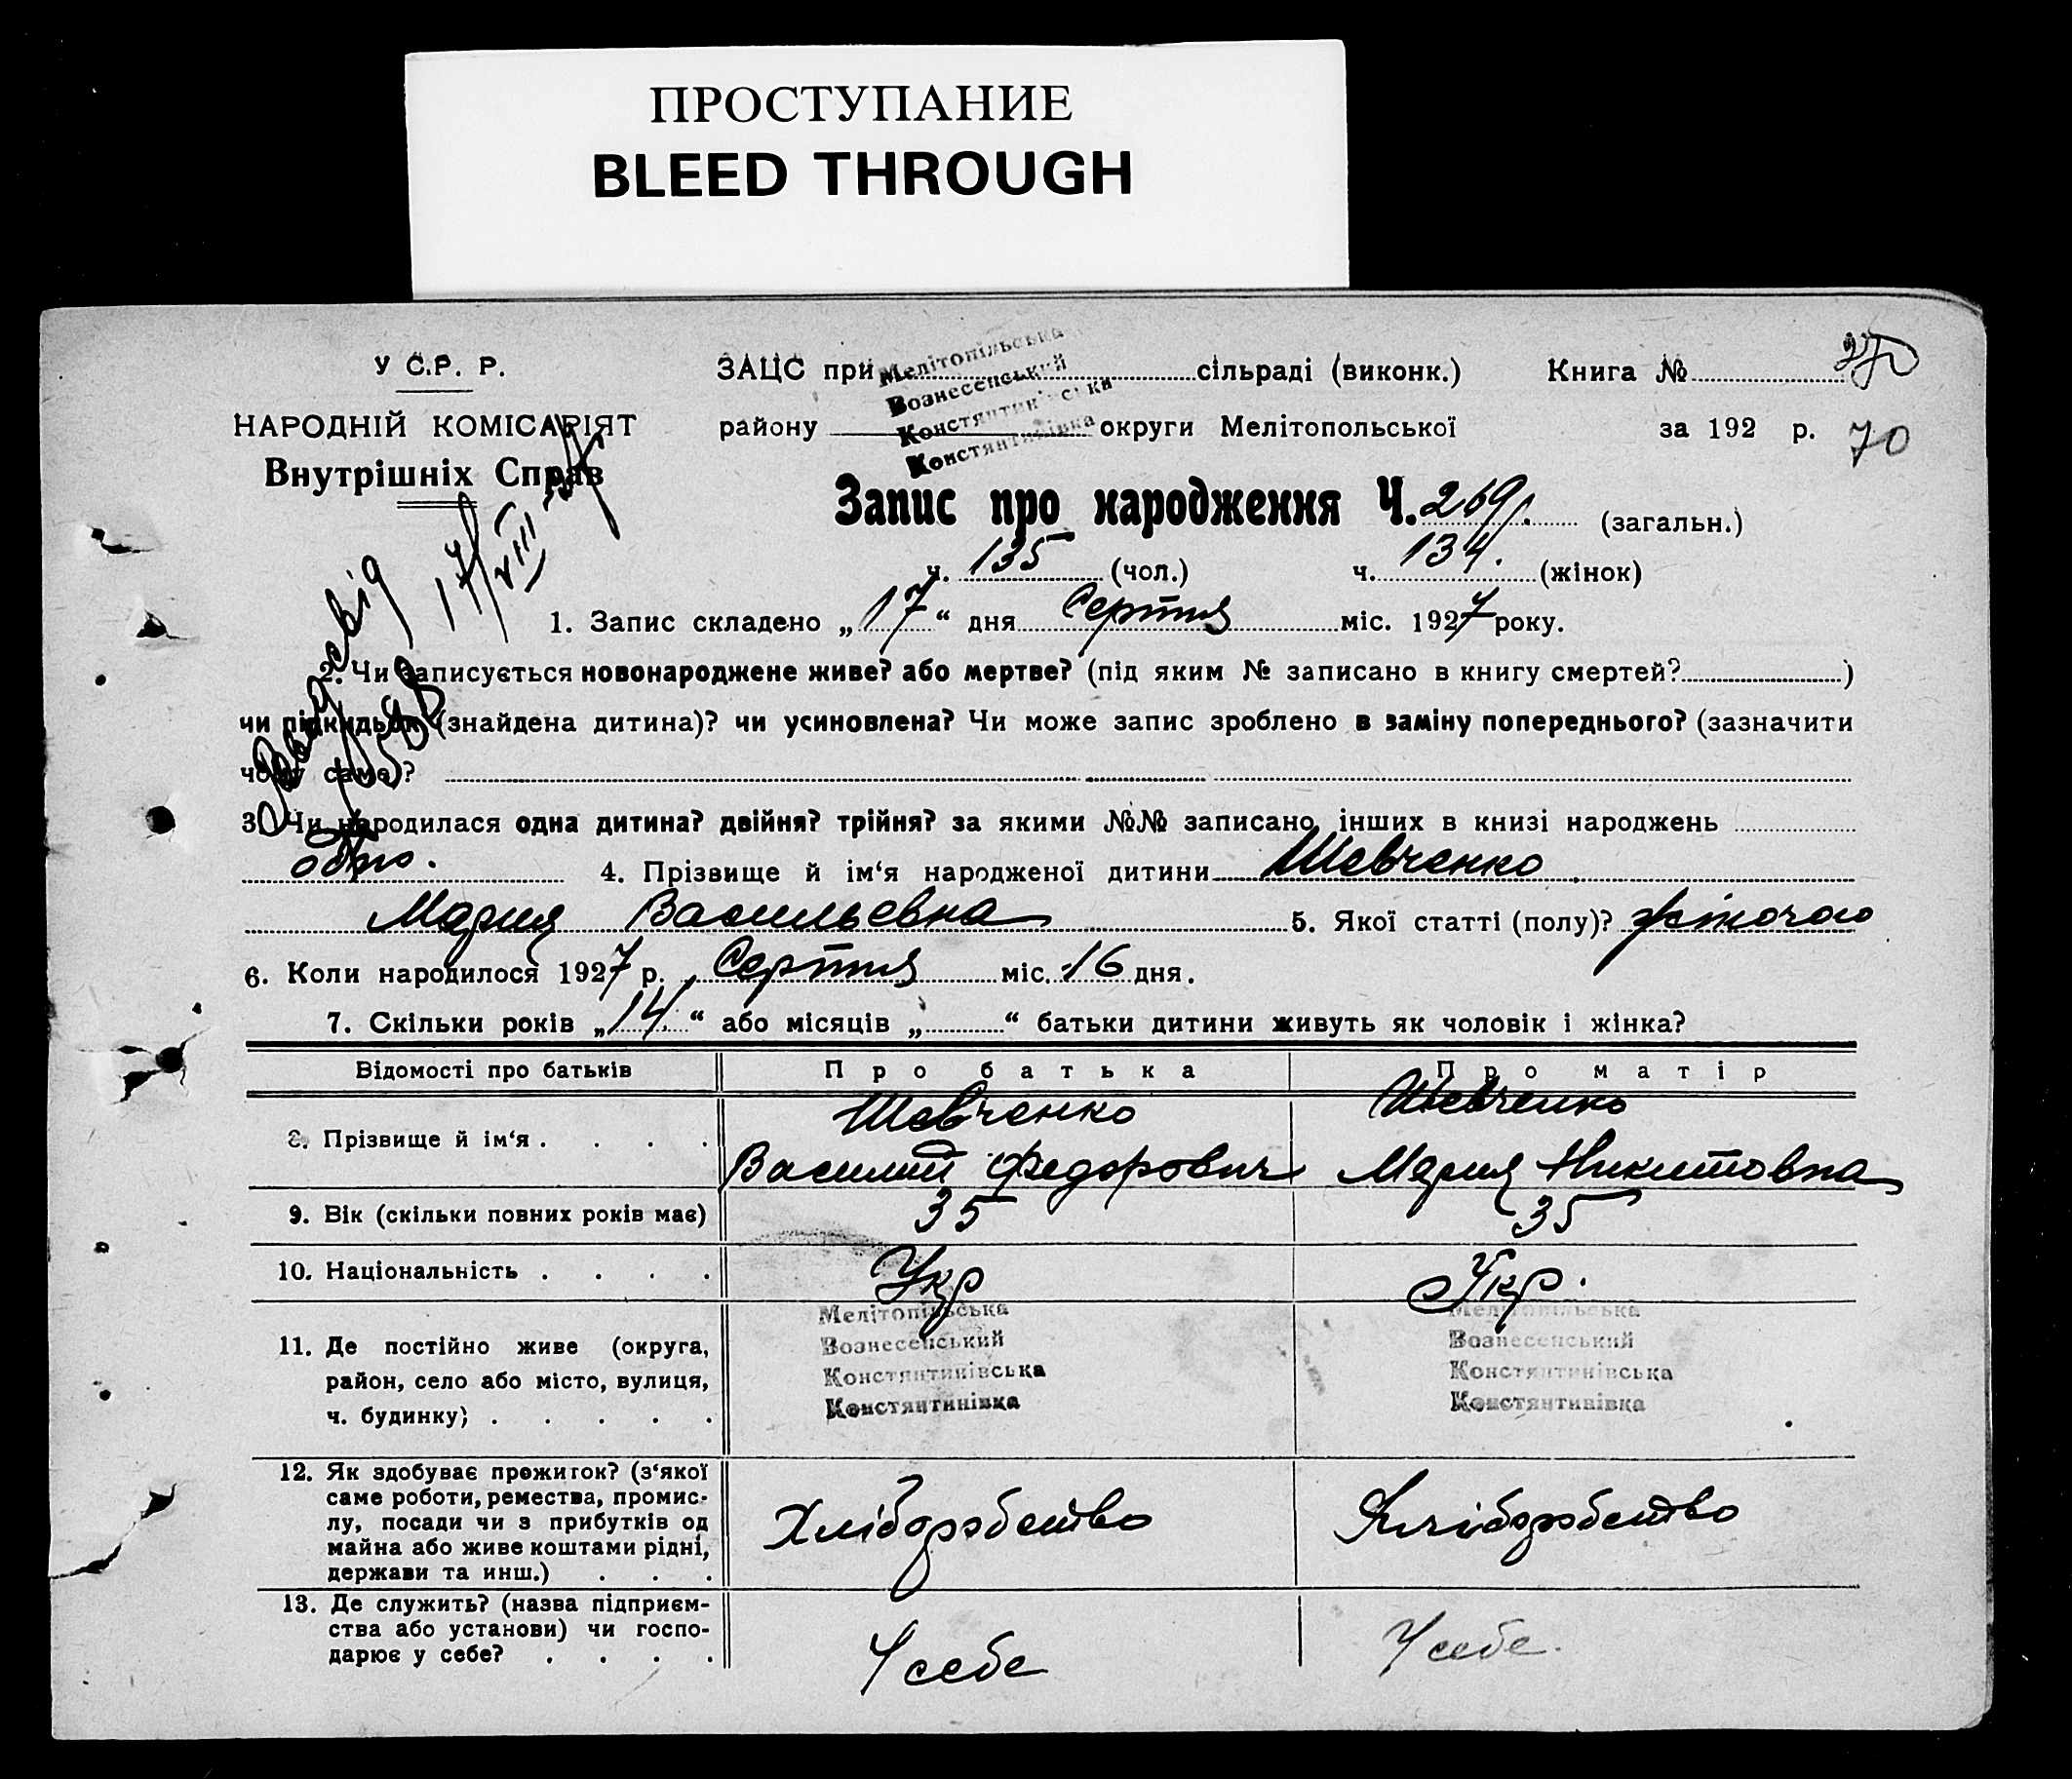 ПРОСТУПАНИЕ
BLEED THROUGH
У С.Р. Р.
НАРОДНІЙ КОМІСАРІЯТ
Внутрішніх Справ
ЗАЦС при сільраді (виконк.) Книга №
Мелітопільська
Вознесенський
Констянтинівська
Констянтинівка
району округи Мелітопольської за 192 р. 70
Запис про народження Ч. 269. (загальн.)
ч. 135 (чол.) ч. 134. (жінок)
17/VIII
1. Запис складено „17“ дня Серпня міс. 1927 року.
2. Чи записується новонароджене живе? або мертве? (під яким № записано в книгу смертей? )
чи підкидьок (знайдена дитина)? чи усиновлена? Чи може запис зроблено в заміну попереднього? (зазначити
чому саме)?
3. Чи народилася одна дитина? двійня? трійня? за якими №№ записано інших в книзі народжень
одно. 4. Прізвище й ім‘я народженої дитини Шевченко
Мария Васильевна 5. Якої статті (полу)? жіночого
6. Коли народилося 1927 р. Серпня міс. 16 дня.
7. Скільки років „14“ або місяців „ “ батьки дитини живуть як чоловік і жінка?
Відомості про батьків Про батька Про матір
8. Прізвище й ім‘я . . . . Шевченко Василий Федорович Шевченко Мария Никитовна
9. Вік (скільки повних років має) 35 35
10. Національність . . . . Укр Укр.
11. Де постійно живе (округа,
район, село або місто, вулиця,
ч. будинку) . . . . .
Мелітопільська
Вознесенський
Констянтинівська
Констянтинівка
Мелітопільська
Вознесенський
Констянтинівська
Констянтинівка
12. Як здобуває прожиток? (з‘якої
саме роботи, ремества, промис-
лу, посади чи з прибутків од
майна або живе коштами рідні,
держави та инш.) . . .
Хліборобство Хліборобство
13. Де служить? (назва підприєм-
ства або установи) чи госпо-
дарює у себе? . . . .
У себе У себе.